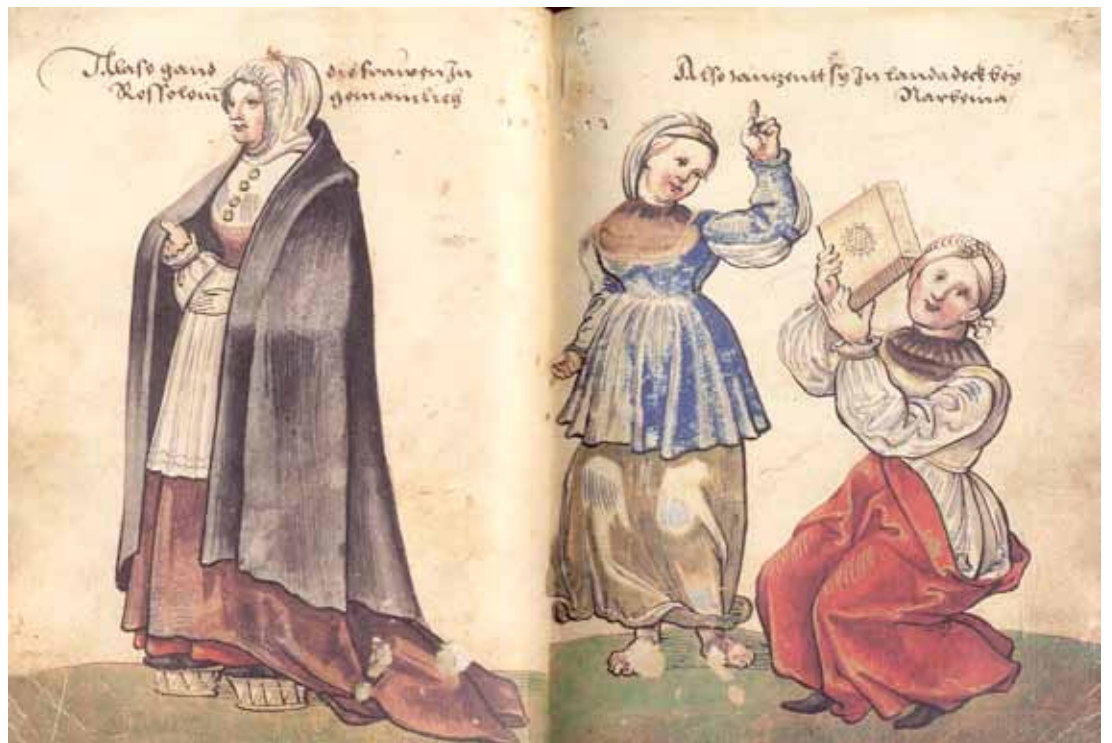 Allso gand die frawen In
Rossolom gemainlich
Also tanzentt sy In landadeck bey
Narbona